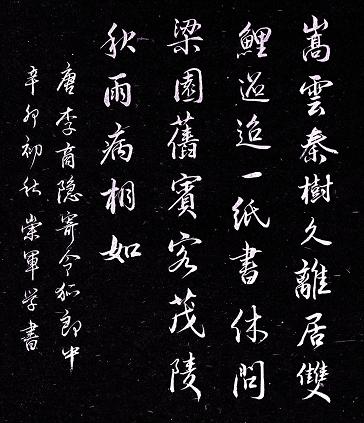 嵩雲秦樹久離居雙
鯉迢迢一紙書休問
梁園舊賓客茂陵
秋雨病相如
唐李商隐寄令狐郎中
辛卯初秋崇軍学書